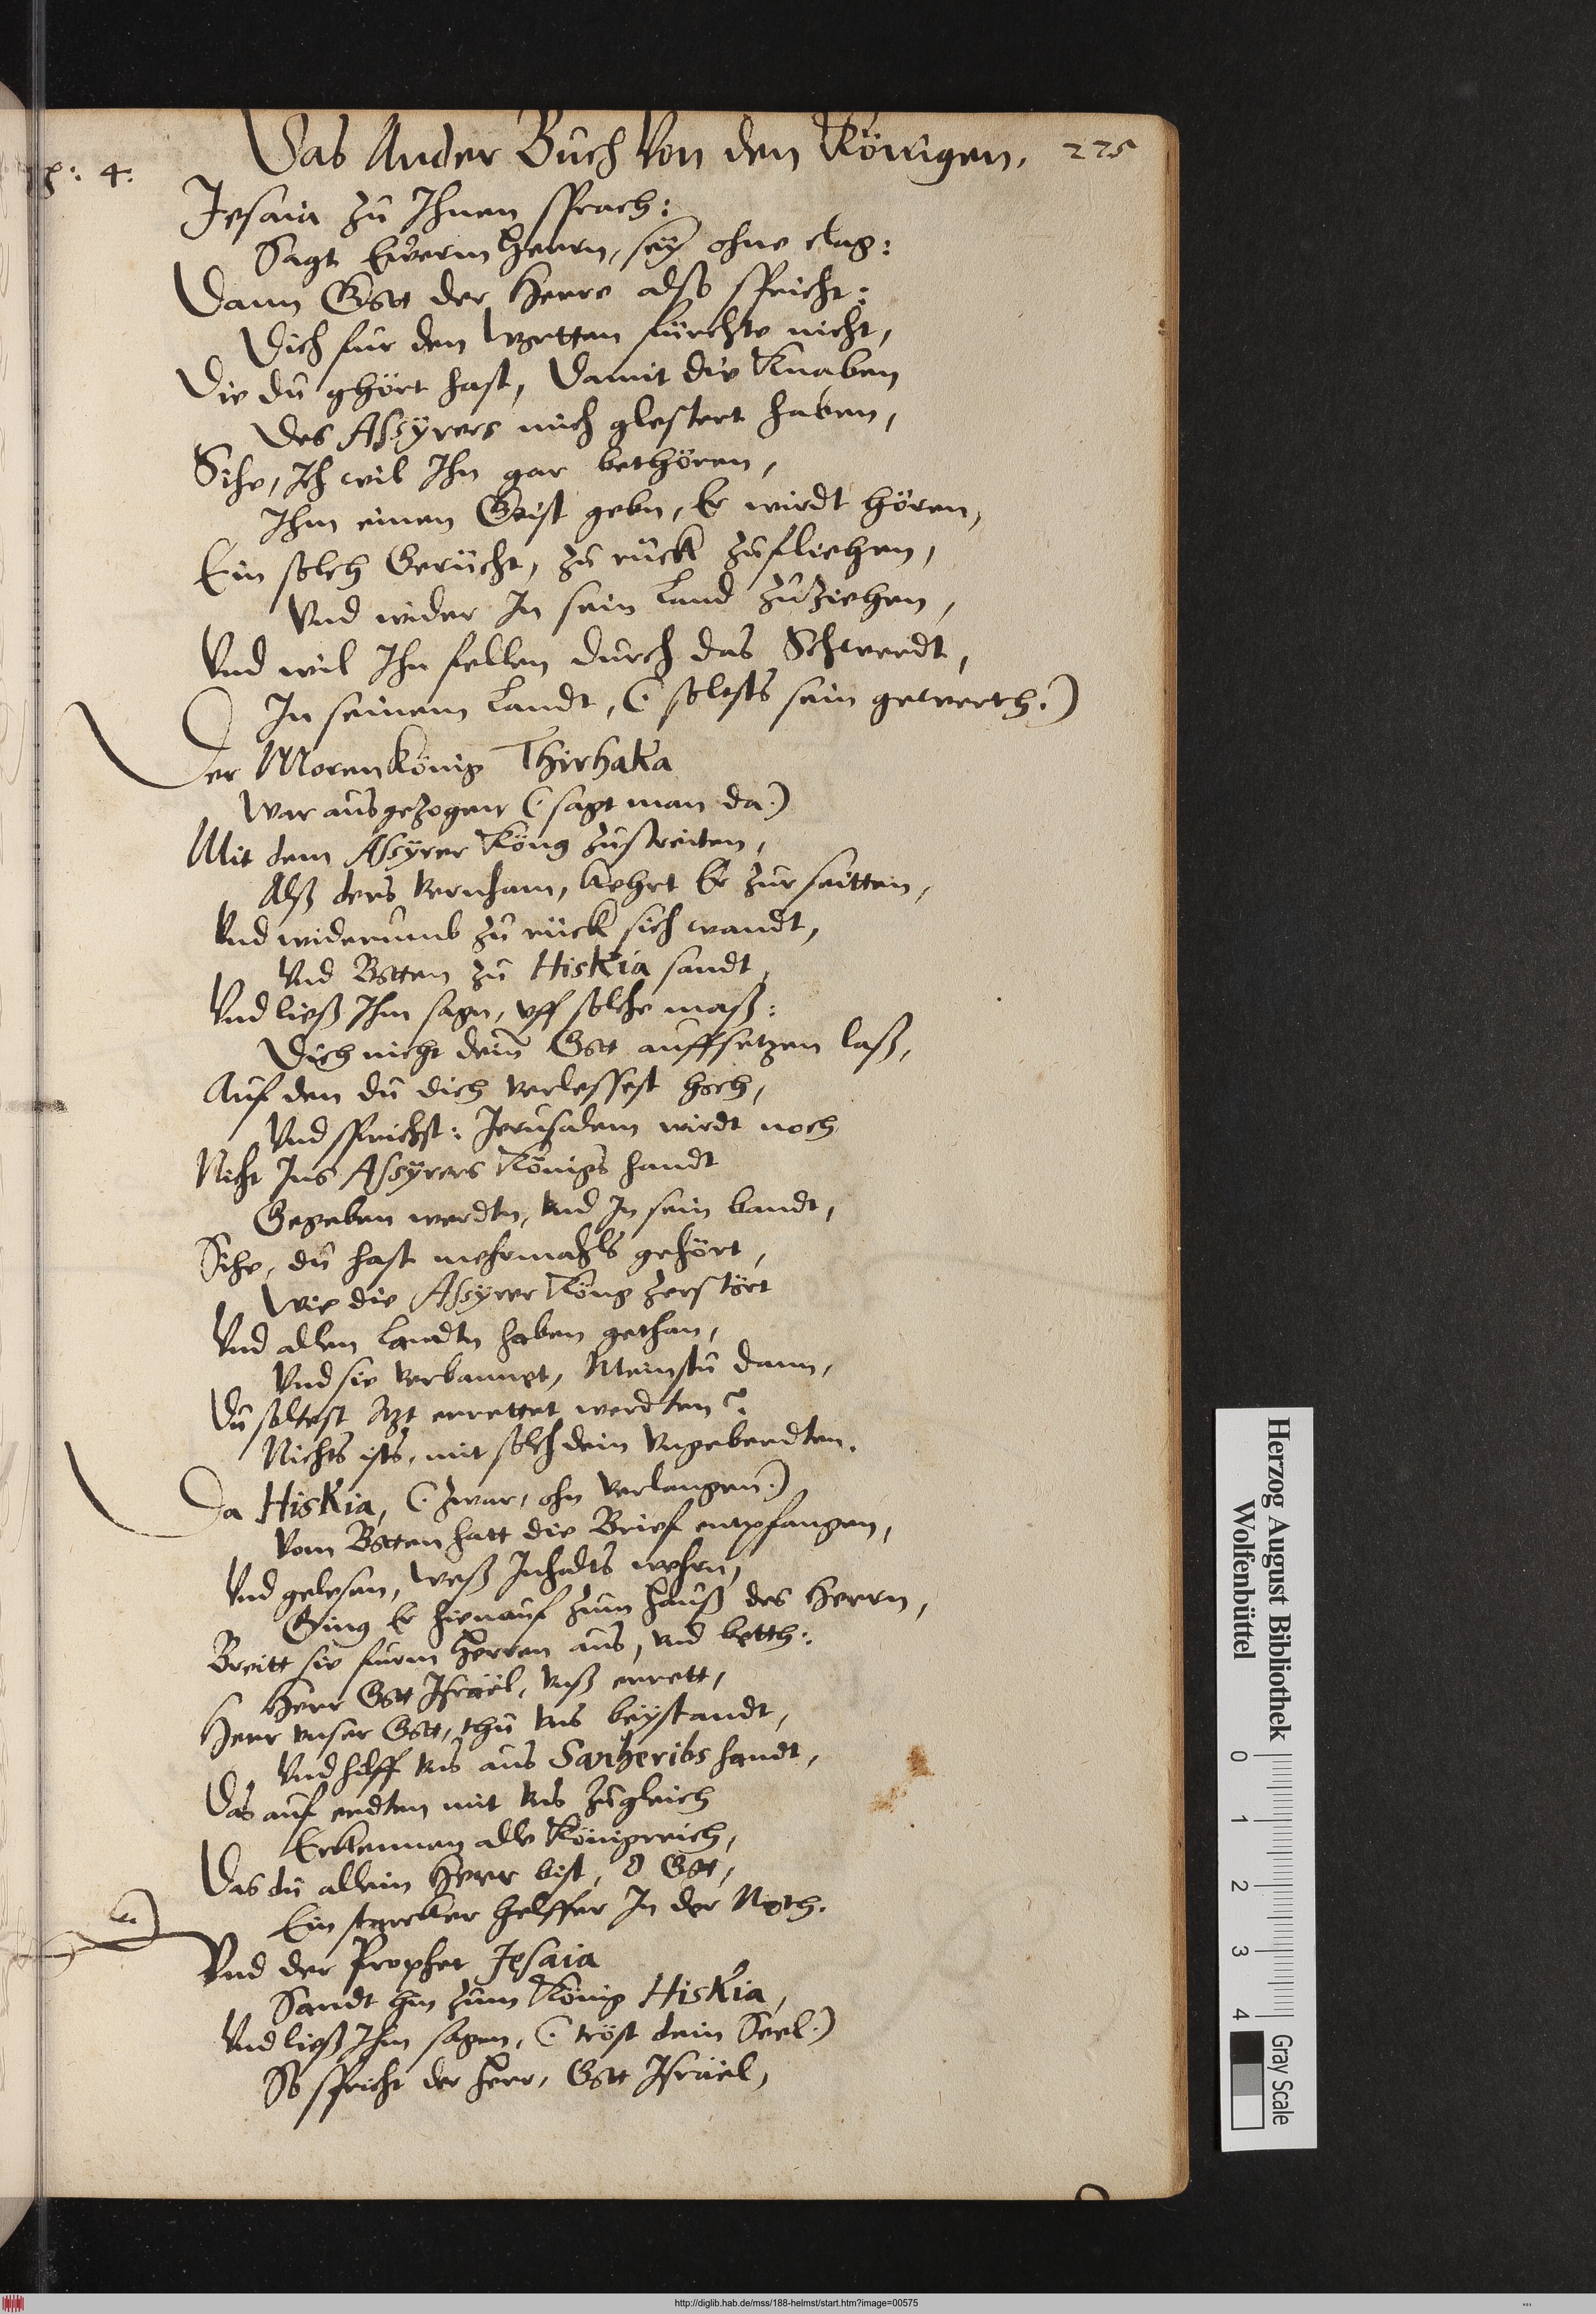 Das Ander Buch Von den Königen. 225
4.
Jesaia zu Ihnen sprach:
Sagt Ewerm Herrn, sey ohne clag:
Dann Gott der Herre also spricht:
Dich fur den Wortten fürchte nicht,
Die du ghört hast, Damit die Knaben
Des Assyrers mich glestert haben,
Sihe, Ich wil Ihn gar bethören,
Ihm einen Geist gebn, Er wirdt hören,
Ein solch Gerücht, zu rück zufliehen,
Vnd wider In sein Land zuziehen,
Vnd wil Ihn fellen durch das Schwerdt,
In seinem Landt, (: solchs sein gewerth:)
Der Morenkönig Thirhaka
War ausgezogen (: sagt man da:)
Mit dem Assyrer Köng zustreiten,
Alß ders vernham, kehrt Er zur seitten,
Vnd widerumb zu rück sich wandt,
Vnd Botten zu Hiskia sandt,
Vnd ließ Ihm sagn, vff solche maß:
Dich nicht dein Gott auffsetzen laß,
Auf den du dich verlessest hoch,
Vnd sprichst: Jerusalem wirdt noch
Nicht Ins Assyrers Königs handt
Gegeben werdtn, vnd In sein bandt,
Sihe, du hast mehrmahls gehört,
Wie die Assyrer Köng zerstört
Vnd allen Landtn haben gethan,
Vnd sie verbannet, Meinstu dann,
Du soltest Itzt errettet werdten?
Nichts ists, mit solch dein vngeberdten.
Da Hiskia, (: zwar, ohn verlangen:)
Vom Botten hatt die Brief entpfangen,
Vnd gelesen, weß Inhalts wehrn,
Ging Er hienauf zum Hauß des Herrn,
Breitt sie furm Herren aus, vnd betth:
Herr Gott Israël, vnß errett,
Herr vnser Gott, thu vns beÿstandt,
Vnd hilff vns aus Sanheribs handt,
Das auf erdten mit vns zugleich
Erkennen alle Königreich,
Das du allein Herr bist, O Gott,
Ein starcker helffer In der Noth.
Vnd der Prophet Jesaia
Sandt hin zum König Hiskia,
Vnd ließ Ihm sagen, (: tröst dein Seel:)
So spricht der Herr, Gott Israël,
Herzog August Bibliothek
Wolfenbüttel
0 1 2 3 4
Gray Scale
http://diglib.hab.de/mss/188-helmst/start.htm?image=00575